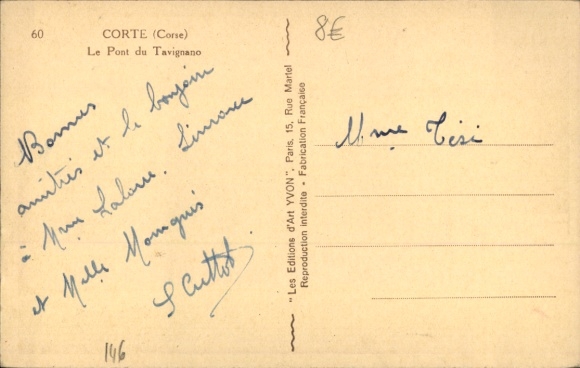 60
CORTE (Corse)
Le Pont du Tavignano
Bonnes
amitiés et le bonjour
à Mme Simone
et Melle
146
"Les Editions d'Art YVON", Paris, 15, Rue Martel
Reproduction interdite - Fabrication Française
8€
Mme